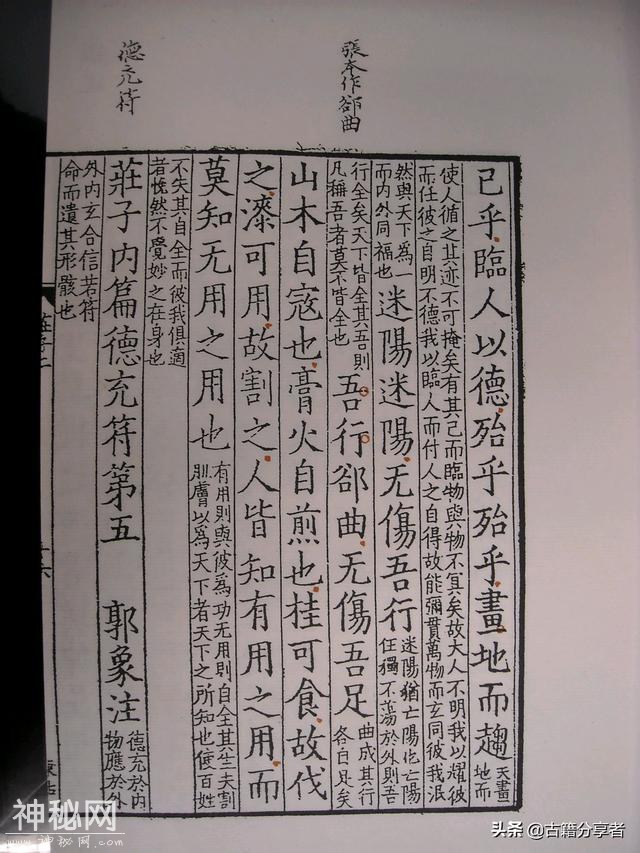 張本作郤曲
德充符
已乎臨人以德殆乎殆乎畫地而趨
夫畫
地而
使人循之其迹不可掩矣有其己而臨物與物不冥矣故大人不明我以耀彼
而任彼之自明不德我以臨人而付人之自得故能彌貫萬物而玄同彼我泯
然與天下為一
而内外同福也
迷陽迷陽无傷吾行
迷陽猶亡陽也亡陽
任獨不蕩於外則吾
行全矣天下皆全其吾則
凡稱吾者莫不皆全也
吾行郤曲无傷吾足
曲成其行
各自足矣
山木自寇也膏火自煎也桂可食故伐
之漆可用故割之人皆知有用之用而
莫知无用之用也
有用則與彼為功无用則自全其生夫割
肌膚以為天下者天下之所知也使百姓
不失其自全而彼我俱適
者悗然不覺妙之在身也
莊子内篇德充符第五 郭象注
德充於内
物應於外
外内玄合信若符
命而遺其形骸也
莊子二
十六
神秘网
www.神秘网.com
头条 @古籍分享者